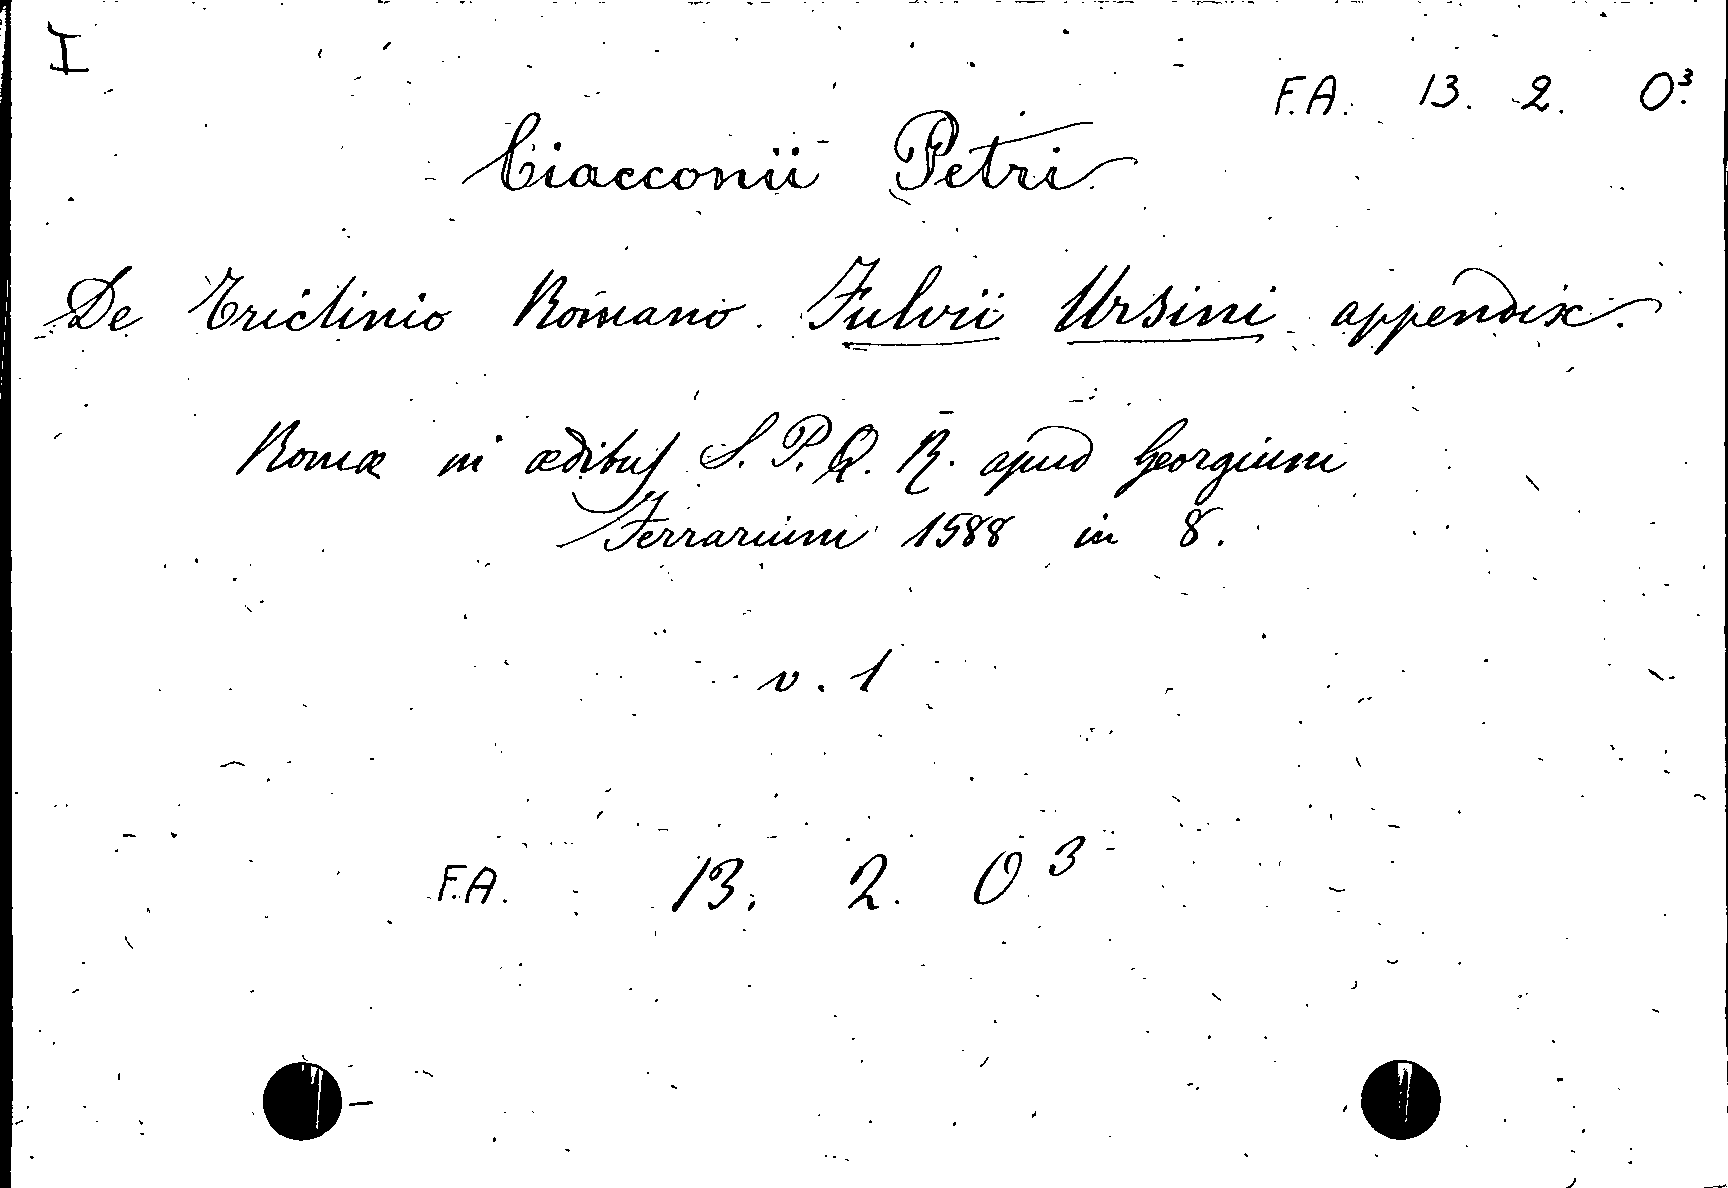 I
F.A. 13. 2. O³.
Ciacconii Petri
De Triclinio Romano. Fulvii Ursini appendix.
Romæ in ædibus S. P. Q. R. apud Georgium
Ferrarium 1588 in 8.
v. 1
F.A. 13. 2. O³